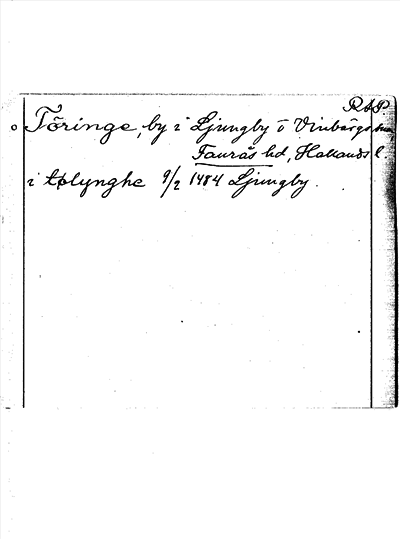 RAP.
o Töringe, by i Ljungby o Vinbergs snr,
Faurås hd, Hallands l.
i tølynghe 9/2 1484 Ljungby.